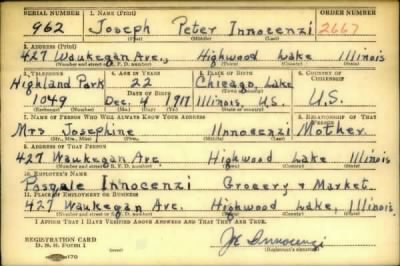 SERIAL NUMBER 1. NAME (Print) ORDER NUMBER
962 Joseph Peter Innocenzi 2667
(First) (Middle) (Last)
2. ADDRESS (Print)
427 Waukegan Ave., Highwood Lake Illinois
(Number and street or R. F. D. number) (Town) (County) (State)
3. TELEPHONE 4. AGE IN YEARS 5. PLACE OF BIRTH 6. COUNTRY OF CITIZENSHIP
Highland Park 22 Chicago, Lake
DATE OF BIRTH (Town or county)
1049 Dec. 4, 1917 Illinois, U.S. U.S.
(Exchange) (Number) (Mo.) (Day) (Yr.) (State or country)
7. NAME OF PERSON WHO WILL ALWAYS KNOW YOUR ADDRESS 8. RELATIONSHIP OF THAT PERSON
Mrs Josephine Innocenzi Mother
(Mr., Mrs., Miss) (First) (Middle) (Last)
9. ADDRESS OF THAT PERSON
427 Waukegan Ave. Highwood Lake Illinois
(Number and street or R. F. D. number) (Town) (County) (State)
10. EMPLOYER'S NAME
Pasquale Innocenzi Grocery + Market
11. PLACE OF EMPLOYMENT OR BUSINESS
427 Waukegan Ave. Highwood Lake, Illinois
(Number and street or R. F. D. number) (Town) (County) (State)
I AFFIRM THAT I HAVE VERIFIED ABOVE ANSWERS AND THAT THEY ARE TRUE.
REGISTRATION CARD
D. S. S. Form 1 Innocenzi
(Registrant's signature)